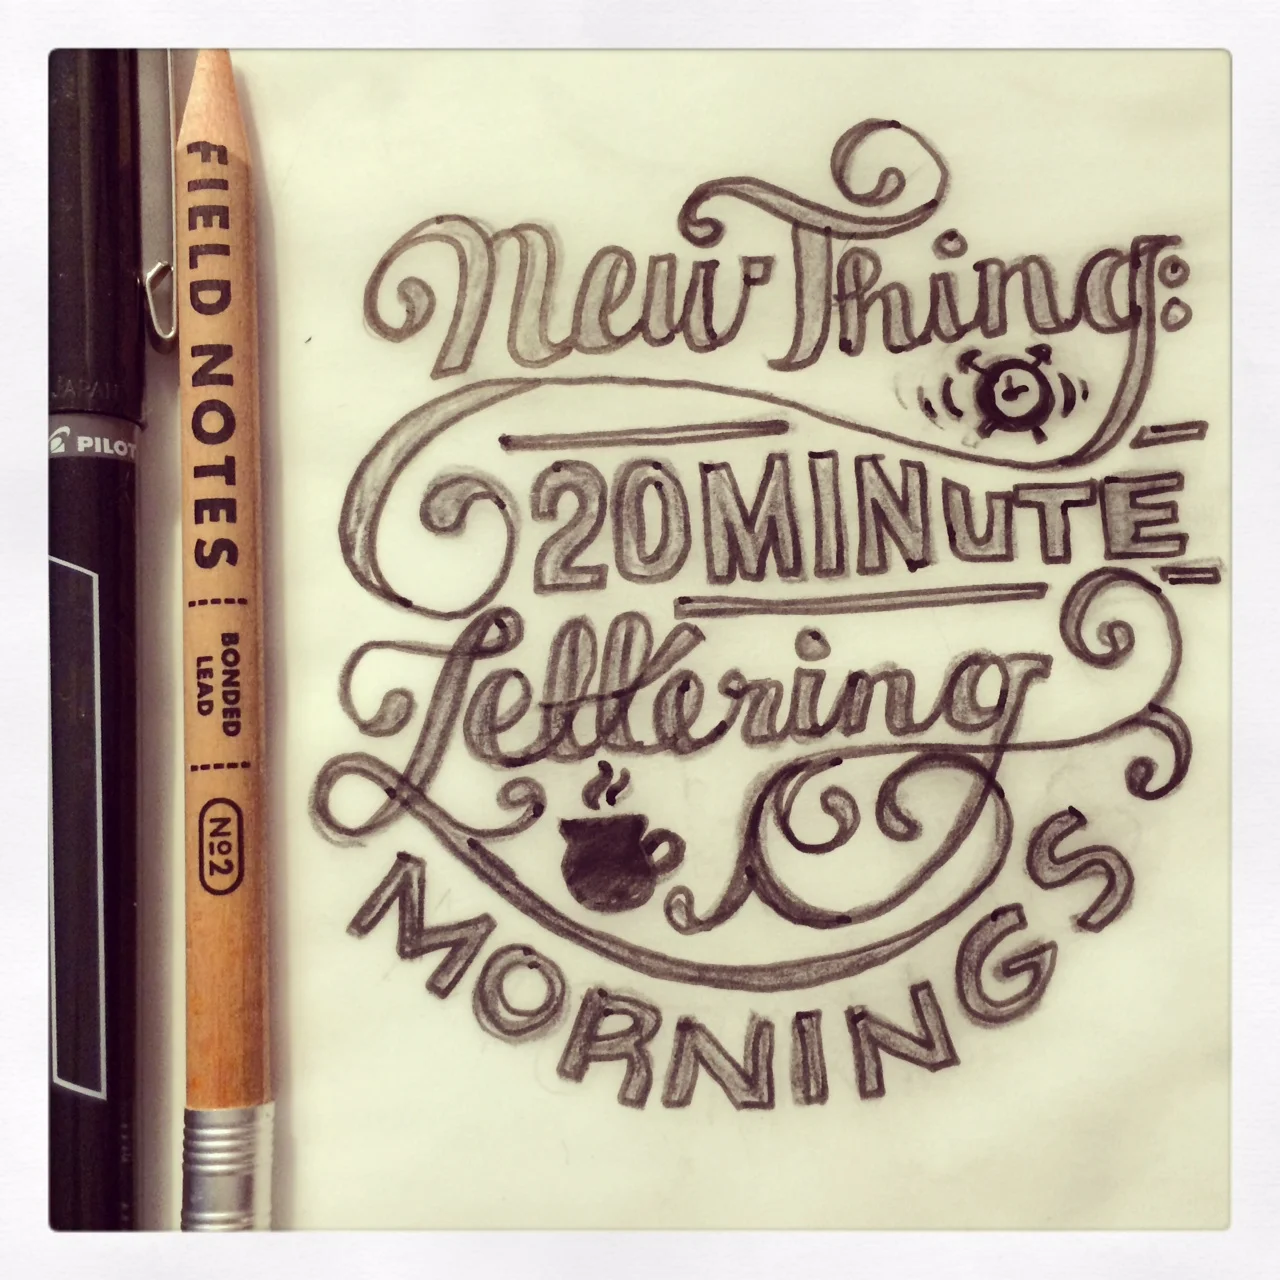 New Thing:
20 MINUTE
Lettering
MORNINGS
FIELD NOTES
BONDED
LEAD
No2
JAPAN
PILOT